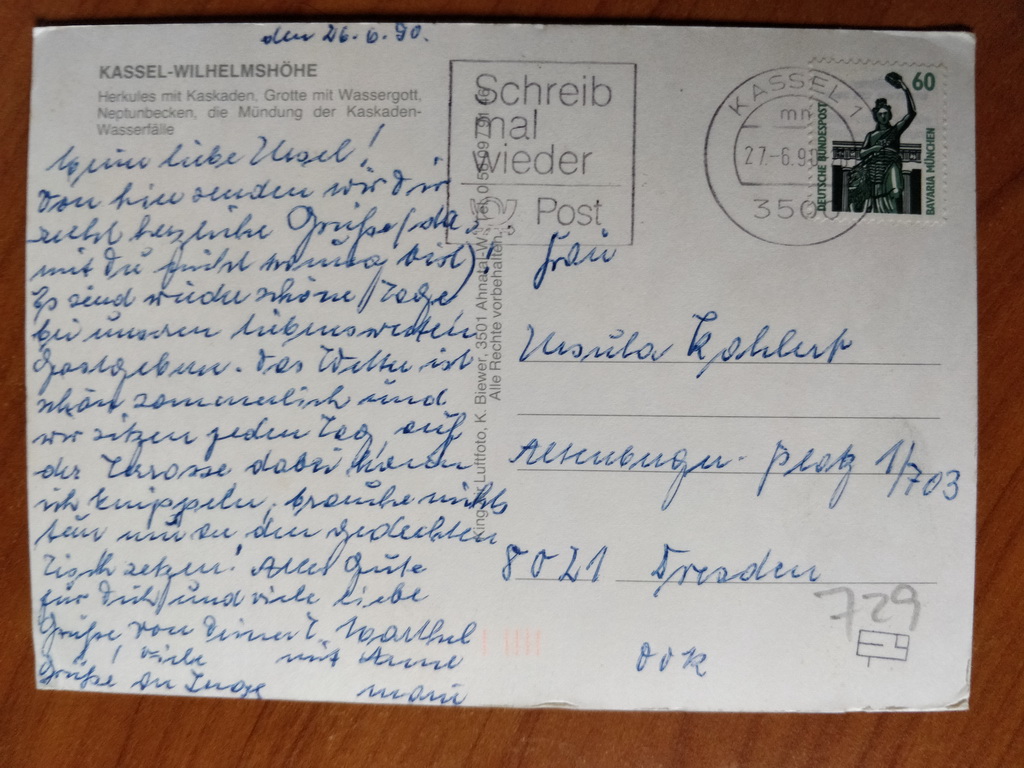 den 26.6.90.
KASSEL-WILHELMSHÖHE
Herkules mit Kaskaden, Grotte mit Wassergott,
Neptunbecken, die Mündung der Kaskaden-
Wasserfälle
Meine liebe Ursel!
Von hier senden wir Dir
recht herzliche Grüße (da
mit Du nicht traurig bist)!
Es sind wieder schöne Tage
bei unseren liebenswerten
Gastgebern. Das Wetter ist
schön sommerlich und
wir sitzen jeden Tag auf
der Terrasse dabei kann
ich knippeln, brauche nichts
tun nur an den gedeckten
Tisch setzen! Alles Gute
für Dich und viele liebe
Grüße von Deiner
mit Anne
marie
viele
Grüße an Inge
Schreib
mal
wieder
Post
KASSEL 1
mn
27.-6.90
3500
60
DEUTSCHE BUNDESPOST
BAVARIA MÜNCHEN
Luftfoto, K. Biewer, 3501 Ahnatal-W
Alle Rechte vorbehalten.
Frau
Ursula Kahlert
Altenburger-Platz 1/703
8021 Dresden
DDR
729